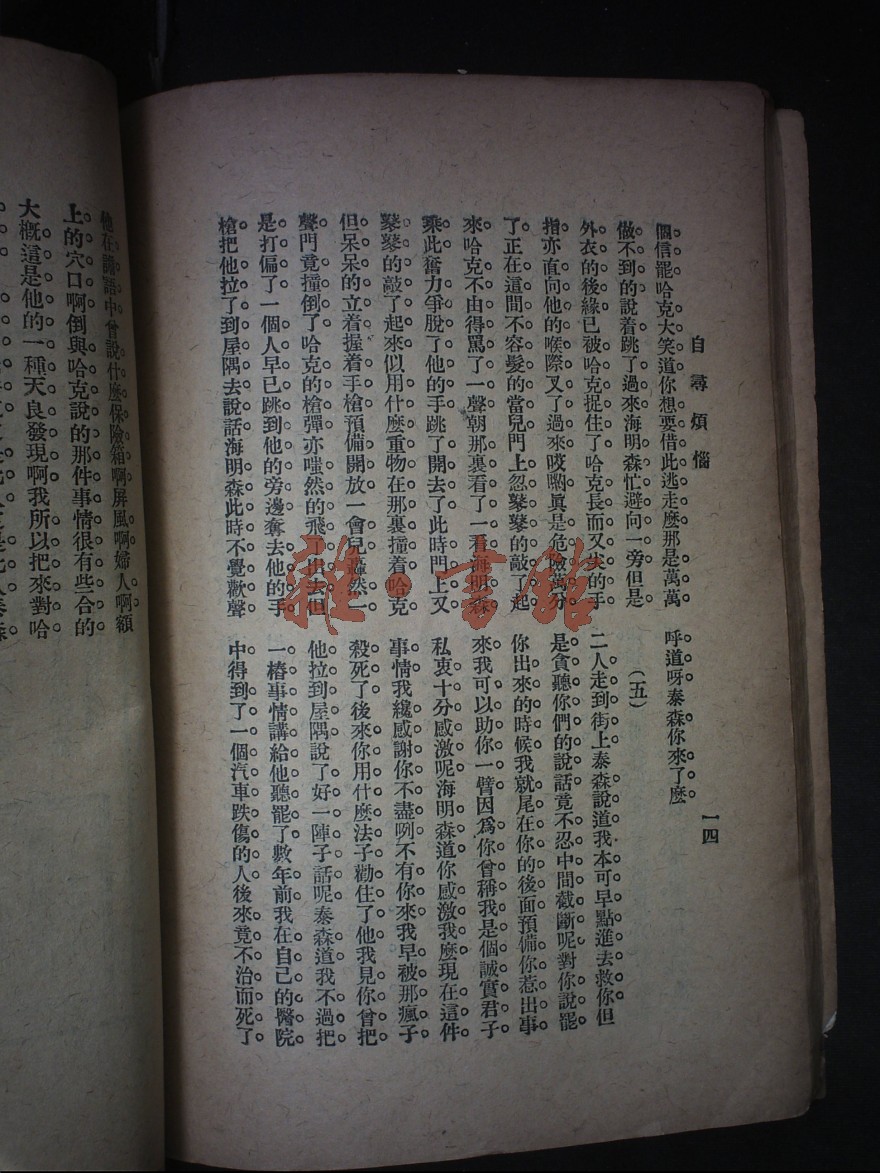 自尋煩惱
一四
個信罷哈克大笑道你想要借此逃走麼那是萬萬
做不到的說着跳了過來海明森忙避向一旁但是
外衣的後緣已被哈克捉住了哈克長而又尖的手
指亦直向他的喉際叉了過來哎喲眞是危險萬分
了正在這間不容髮的當兒門上忽鼕鼕的敲了起
來哈克不由得罵了一聲朝那裏看了一看海明森
乘此奮力爭脫了他的手跳了開去了此時門上又
鼕鼕的敲了起來似用什麼重物在那裏撞着哈克
但呆呆的立着握着手槍預備開放一會兒轟然一
聲門竟撞倒了哈克的槍彈亦嗤然的飛了出去但
是打偏了一個人早已跳到他的旁邊奪去他的手
槍把他拉了到屋隅去說話海明森此時不覺歡聲
呼道呀泰森你來了麼
(五)
二人走到街上泰森說道我本可早點進去救你但
是貪聽你們的說話竟不忍中間截斷呢對你說罷
你出來的時候我就尾在你的後面預備你惹出事
來我可以助你一臂因爲你曾稱我是個誠實君子
私衷十分感激呢海明森道你感激我麼現在這件
事情我纔感謝你不盡咧不有你來我早被那瘋子
殺死了後來你用什麼法子勸住了他我見你曾把
他拉到屋隅說了好一陣子話呢泰森道我不過把
一樁事情講給他聽罷了數年前我在自己的醫院
中得到了一個汽車跌傷的人後來竟不治而死了
他在譫語中曾說什麼保險箱啊屏風啊婦人啊額
上的穴口啊倒與哈克說的那件事情很有些合的
大概這是他的一種天良發現啊我所以把來對哈
雜·書館